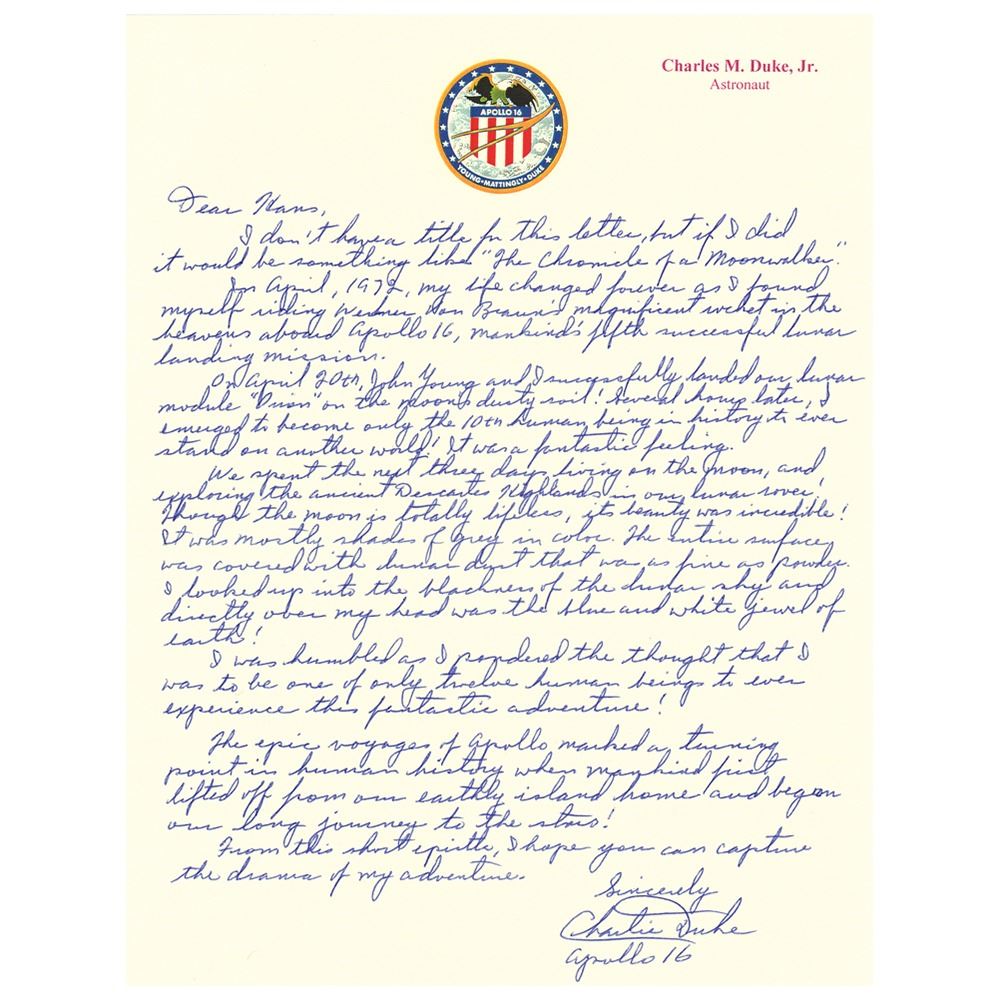 Charles M. Duke, Jr.
Astronaut
APOLLO 16
YOUNG • MATTINGLY • DUKE
Dear Hans,
I don't have a title for this letter, but if I did
it would be something like "The Chronicle of a Moonwalker."
In April, 1972, my life changed forever as I found
myself riding Werner Von Braun's magnificent rocket in the
heavens aboard Apollo 16, mankind's fifth successful lunar
landing mission.
On April 20th, John Young and I successfully landed our lunar
module "Orion" on the moon's dusty soil! Several hours later, I
emerged to become only the 10th human being in history to ever
stand on another world! It was a fantastic feeling.
We spent the next three days living on the moon, and
exploring the ancient Descartes Highlands in our lunar rover!
Though the moon is totally lifeless, its beauty was incredible!
It was mostly shades of grey in color. The entire surface
was covered with lunar dust that was as fine as powder.
I looked up into the blackness of the lunar sky and
directly over my head was the blue and white jewel of
earth!
I was humbled as I pondered the thought that I
was to be one of only twelve human beings to ever
experience this fantastic adventure!
The epic voyages of Apollo marked a turning
point in human history when mankind first
lifted off from our earthly island home and began
our long journey to the stars!
From this short epistle, I hope you can capture
the drama of my adventure.
Sincerely
Charlie Duke
Apollo 16